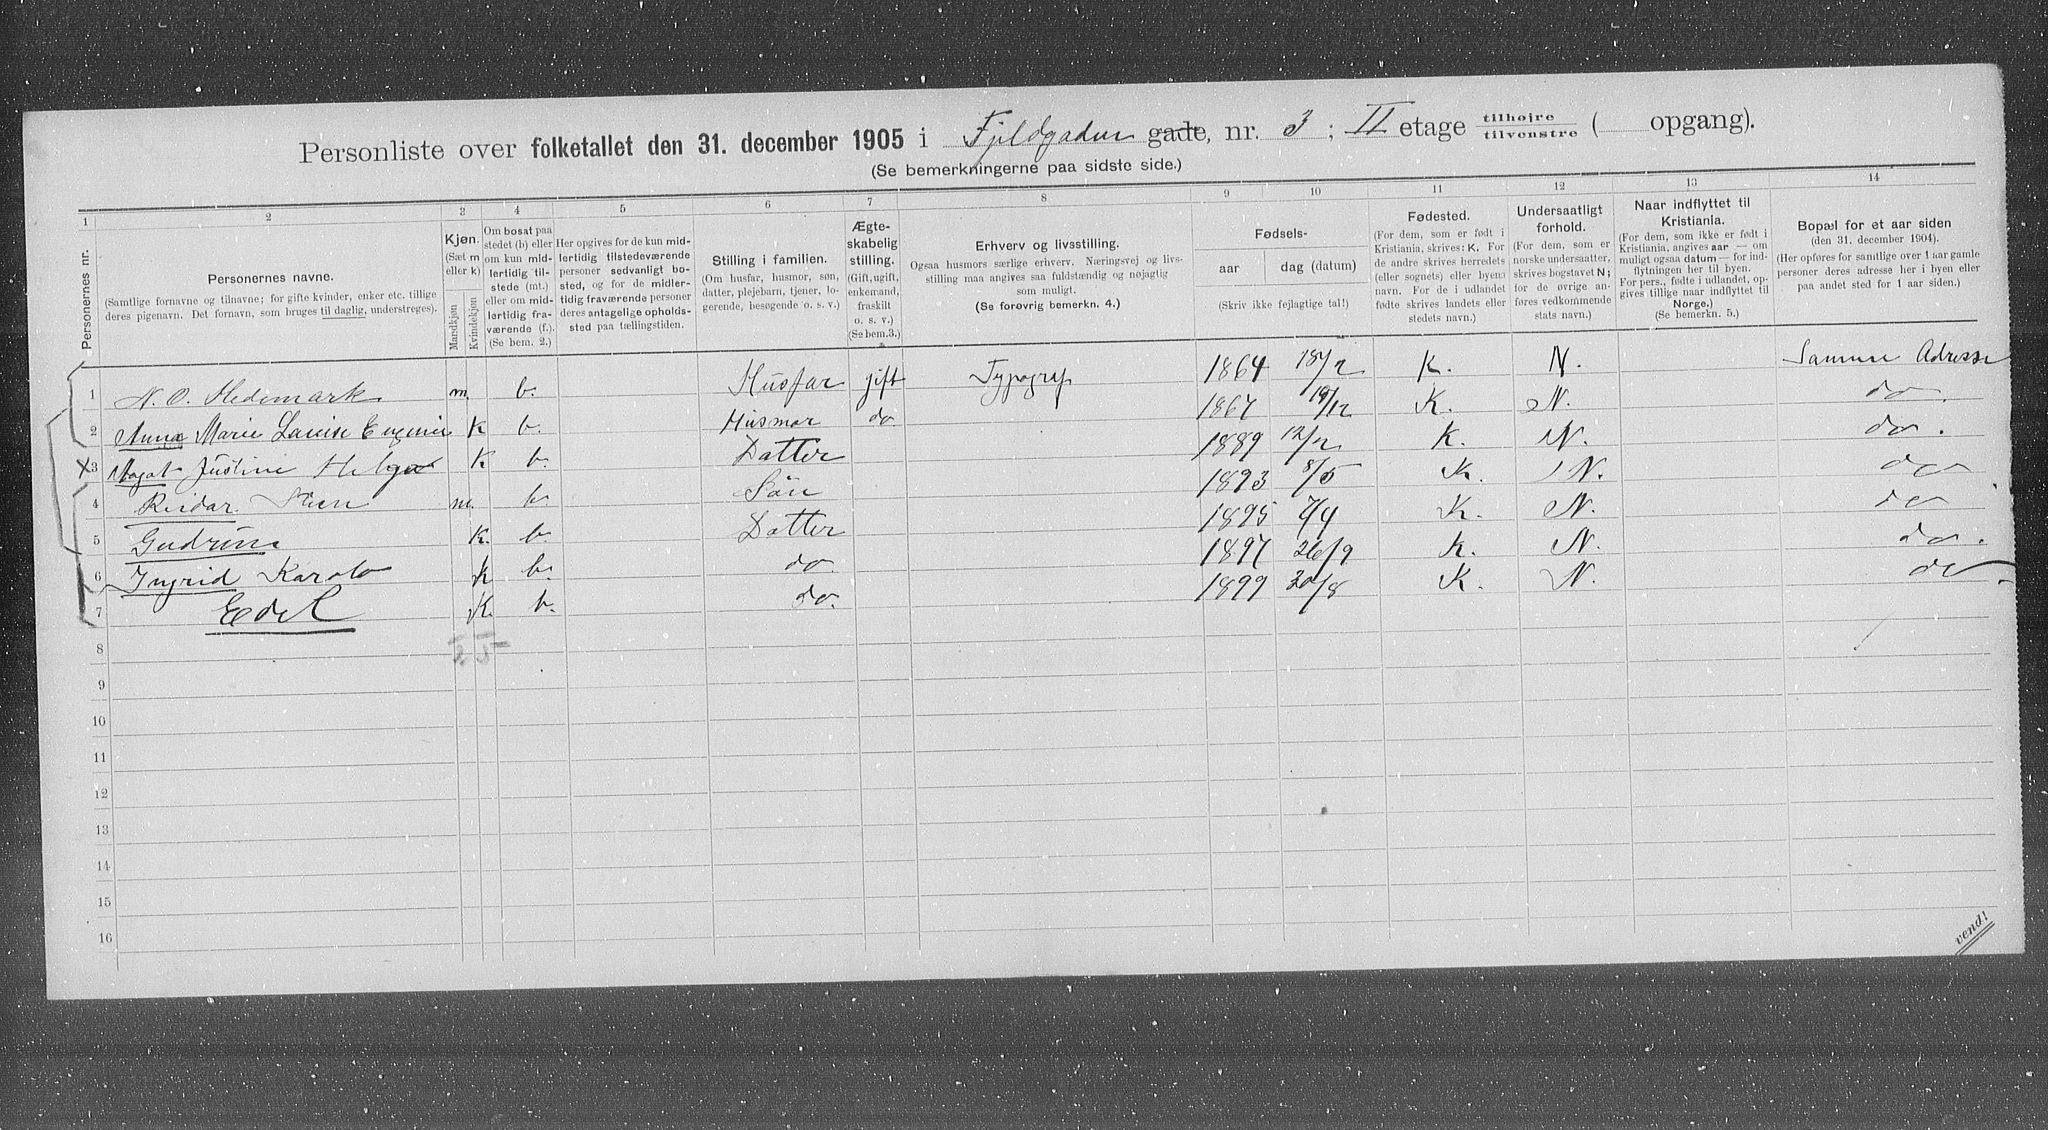 Personliste over folketallet den 31. december 1905 i Fjeldgaden gade, nr. 3; II etage tilhøjre tilvenstre ( opgang).
(Se bemerkningerne paa sidste side.)
1 2 3 4 5 6 7 8 9 10 11 12 13 14
Personernes nr.
Personernes navne.
(Samtlige fornavne og tilnavne; for gifte kvinder, enker etc. tillige
deres pigenavn. Det fornavn, som bruges til daglig, understreges).
Kjøn.
(Sæt m
eller k)
Mandkjøn
Kvindekjøn
Om bosat paa
stedet (b) eller
om kun mid-
lertidig til-
stede (mt.)
eller om mid-
lertidig fra-
værende (f.).
(Se bem. 2.)
Her opgives for de kun mid-
lertidig tilstedeværende
personer sedvanligt bo-
sted, og for de midler-
tidig fraværende personer
deres antagelige opholds-
sted paa tællingstiden.
Stilling i familien.
(Om husfar, husmor, søn,
datter, plejebarn, tjener, lo-
gerende, besøgende o. s. v.)
Ægte-
skabelig
stilling.
(Gift, ugift,
enkemand,
fraskilt
o. s. v.)
(Se bem. 3.)
Erhverv og livsstilling.
Ogsaa husmors særlige erhverv. Næringsvej og livs-
stilling maa angives saa fuldstændig og nøjagtig
som muligt.
(Se forøvrig bemerkn. 4.)
Fødsels-
aar dag (datum)
(Skriv ikke fejlagtige tal!)
Fødested.
(For dem, som er født i
Kristiania, skrives: K. For
de andre skrives herredets
(eller sognets) eller byens
navn. For de i udlandet
fødte skrives landets eller
stedets navn.)
Undersaatligt
forhold.
(For dem, som er
norske undersaatter,
skrives bogstavet N;
for de øvrige an-
føres vedkommende
stats navn.)
Naar indflyttet til
Kristiania.
(For dem, som ikke er født i
Kristiania, angives aar — om
muligt ogsaa datum — for ind-
flytningen her til byen.
For pers., fødte i udlandet, op-
gives tillige naar indflyttet til
Norge.)
(Se bemerkn. 5.)
Bopæl for et aar siden
(den 31. december 1904).
(Her opføres for samtlige over 1 aar gamle
personer deres adresse her i byen eller
paa andet sted for 1 aar siden.)
1 N. O. Hedemark m. b. Husfar gift Typograf 1864 18/2 K. N. Samme Adresse
2 Anna Marie Louise Eugenie K b. Husmor do. 1867 19/12 K. N. do.
X3 Magat Justine Helga K b. Datter 1889 12/2 K. N. do.
4 Reidar Steen m. b. Søn 1893 8/5 K. N. do
5 Gudrun K. b. Datter 1895 7/4 K. N. do
6 Ingrid Karolo K b. do. 1897 26/9 K. N. do.
7 Edel K. b. do. 1899 20/8 K. N. do
2 5
8
9
10
11
12
13
14
15
16
vend!